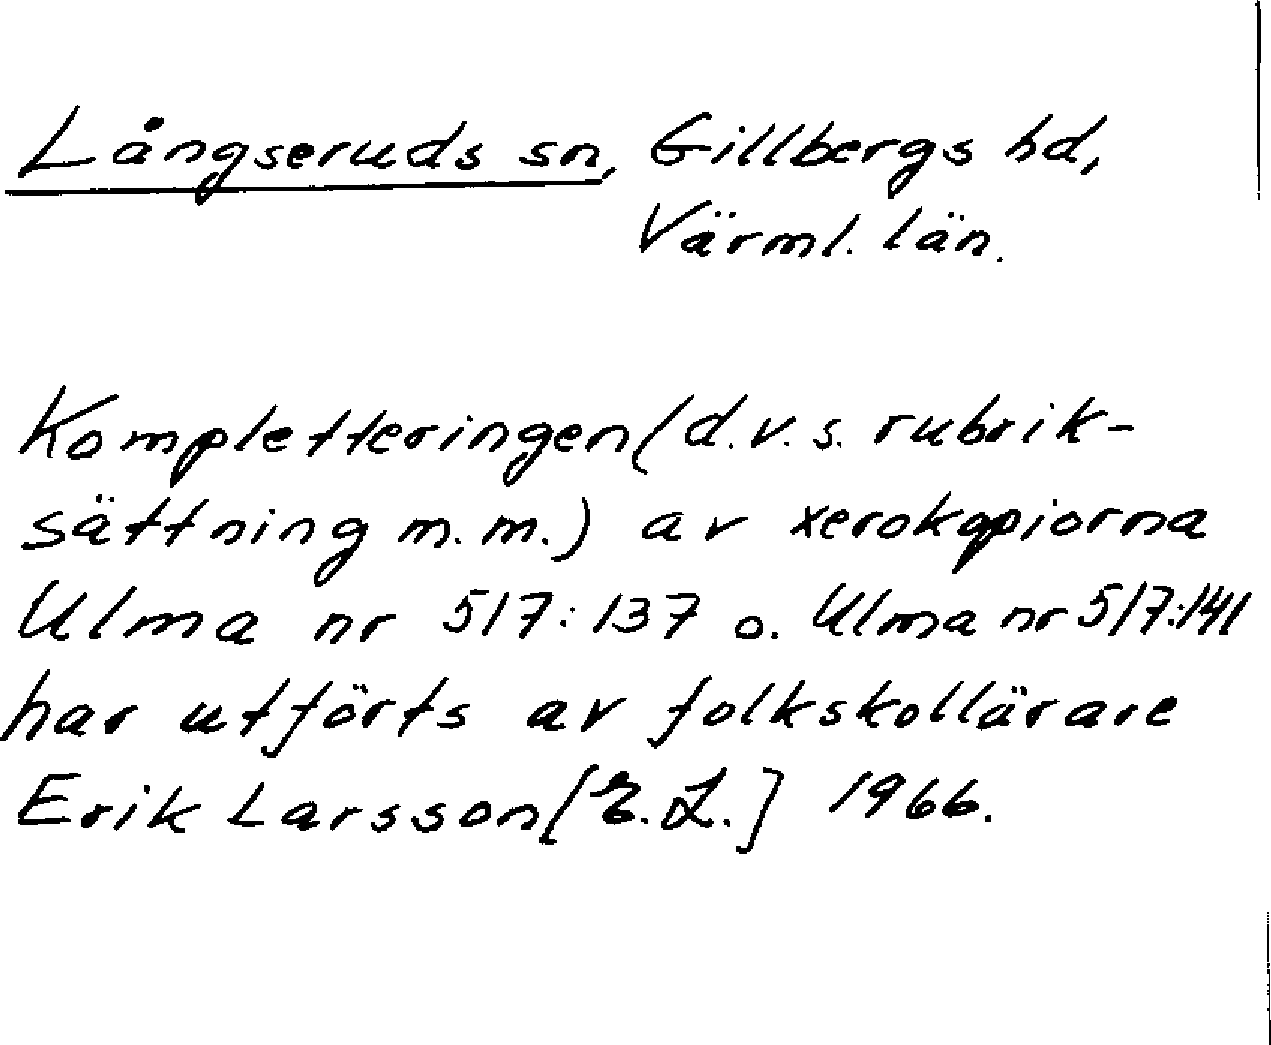 Långseruds sn, Gillbergs hd,
Värml. län.
Kompletteringen (d.v.s. rubrik-
sättning m.m.) av xerokopiorna
Ulma nr 517:137 o. Ulma nr 517:141
har utförts av folkskollärare
Erik Larsson [E.L.] 1966.